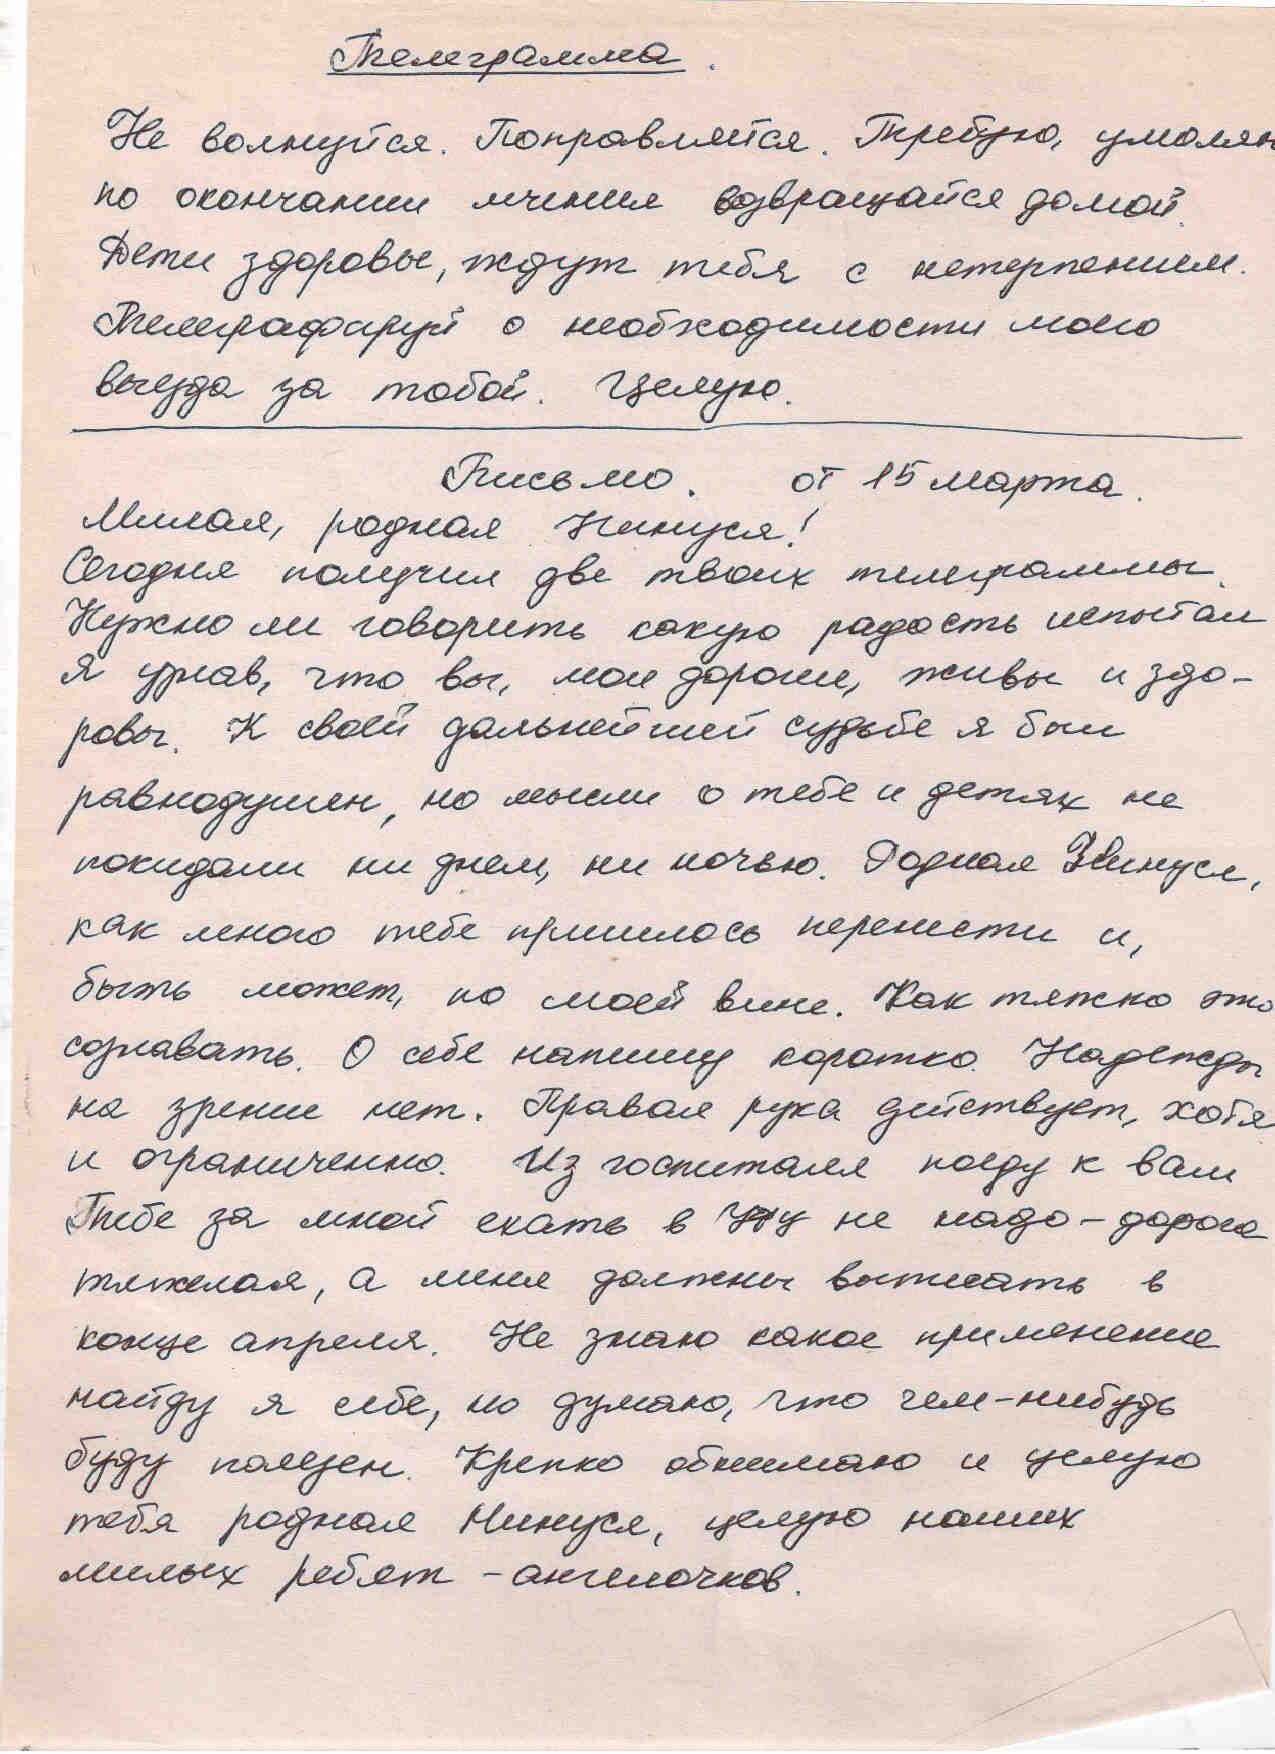 Телеграмма.
Не волнуйся. Поправляйся. Требую, умоляю
по окончании лечения возвращайся домой.
Дети здоровы, ждут тебя с нетерпением.
Телеграфируй о необходимости моего
выезда за тобой. Целую.
Письмо. от 15 марта.
Милая, родная Нинуся!
Сегодня получил две твоих телеграммы.
Нужно ли говорить какую радость испытал
я узнав, что вы, мои дорогие, живы и здо-
ровы. К своей дальнейшей судьбе я был
равнодушен, но мысли о тебе и детях не
покидали ни днем, ни ночью. Родная Нинуся,
как много тебе пришлось перенести и,
быть может, по моей вине. Как тяжко это
сознавать. О себе напишу коротко. Надежды
на зрение нет. Правая рука действует, хотя
и ограниченно. Из госпиталя поеду к вам
Тебе за мной ехать в не надо - дорога
тяжелая, а меня должны выписать в
конце апреля. Не знаю какое применение
найду я себе, но думаю, что чем-нибудь
буду полезен. Крепко обнимаю и целую
тебя родная Нинуся, целую наших
милых ребят - ангелочков.